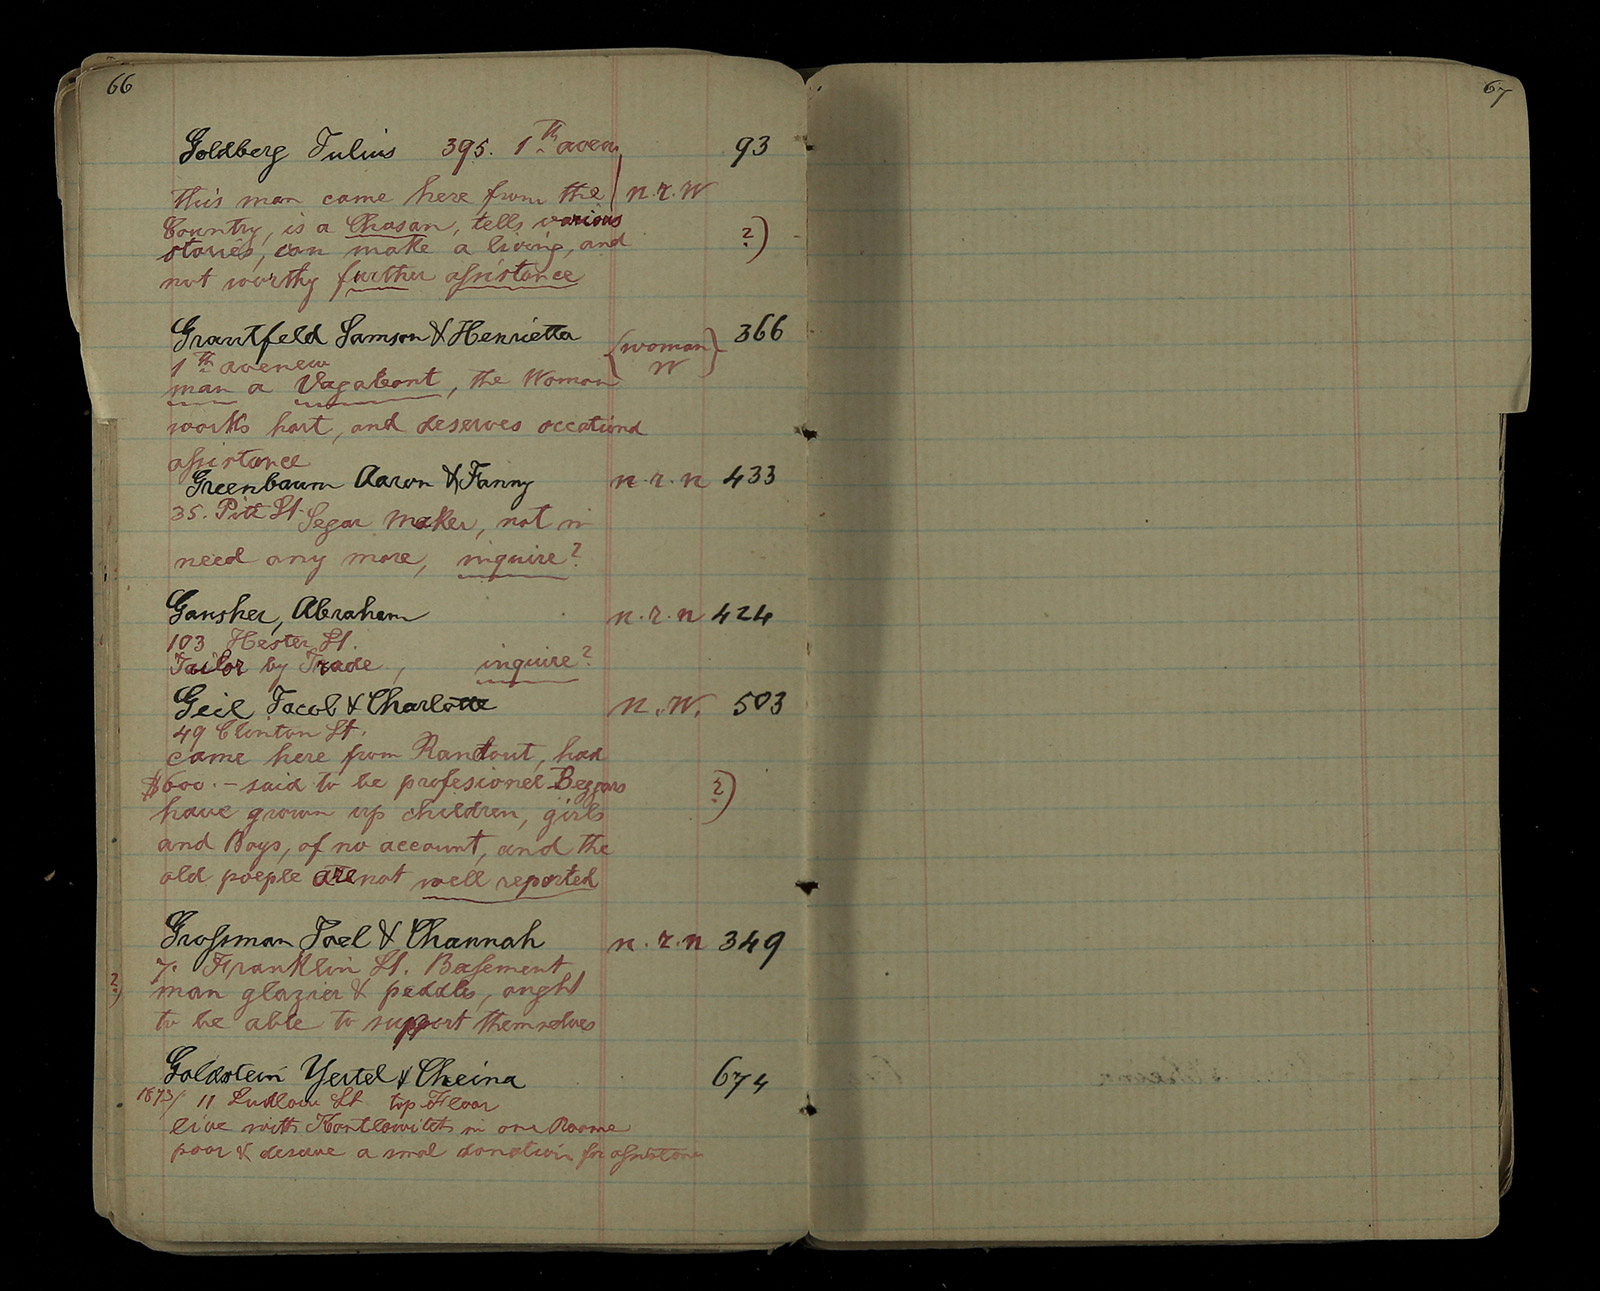 66
67
Goldberg Julius 395. 1th aven 93
this man came here from the n.r.W
Country, is a Chasan, tells various
stories, can make a living, and ?)
not worthy further assistance
Grantfeld Samson & Henrietta {woman} 366
1th avenew W
man a Vagabont, the Woman
works hart, and deserves occational
assistance
Greenbaum Aaron & Fanny n.r.n 433
35. Pitt St. Segar Maker, not in
need any more, inquire?
Gansher, Abraham n.r.n 424
103 Hester St.
Tailor by Trade, inquire?
Geil Jacob & Charlotte N.W. 503
49 Clinton St.
came here from Randout, had
$600.- said to be profesionel Beggars ?)
have grown up children, girls
and Boys, of no account, and the
old poeple are not well reported
Grossman Joel & Channah n.r.n 349
7. Franklin St. Basement
?) man glazier & peddls, ought
to be able to support themselves
Goldstein Yertel & Cheina 674
1873/ 11 Ludlow St. top Floor
live with in one Roome
poor & deserve a smal donation for assistance